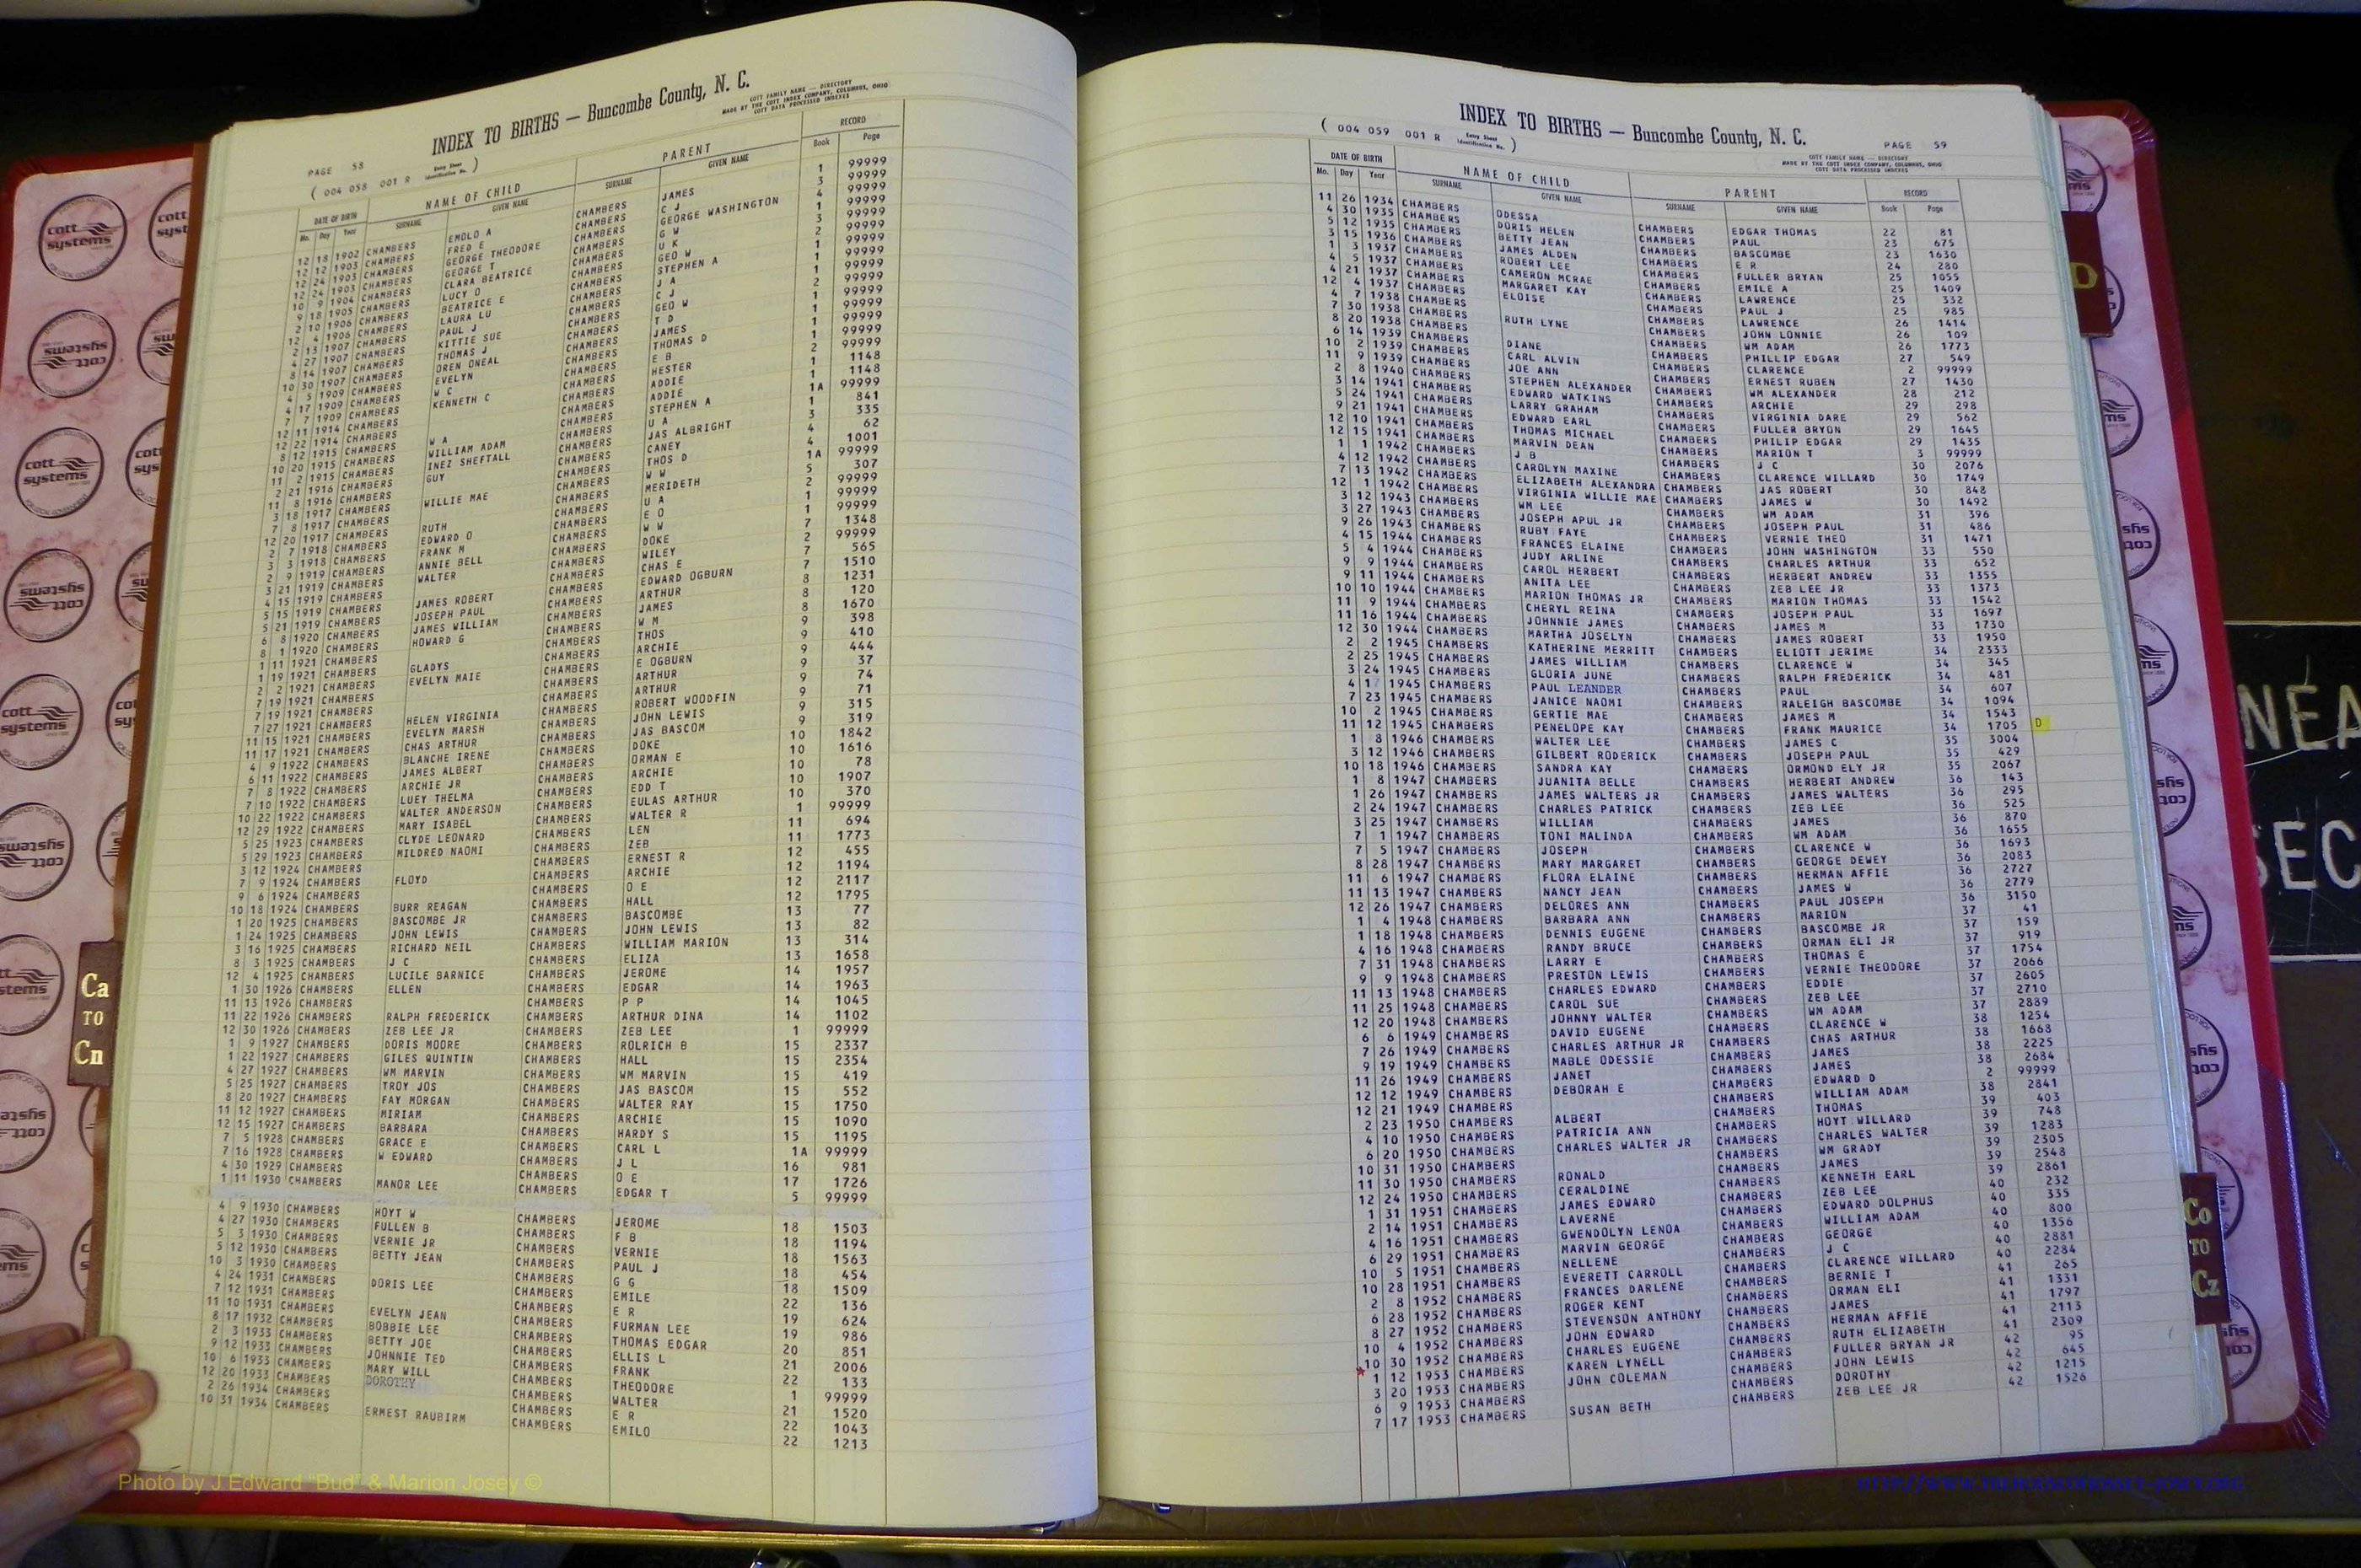 INDEX TO BIRTHS — Buncombe County, N. C.
COTT FAMILY NAME — DIRECTORY
MADE BY THE COTT INDEX COMPANY, COLUMBUS, OHIO
COTT DATA PROCESSED INDEXES
PAGE 58
( 004 058 001 R Entry Sheet Identification No. )
DATE OF BIRTH NAME OF CHILD PARENT RECORD
Mo. Day Year SURNAME GIVEN NAME SURNAME GIVEN NAME Book Page
12 18 1902 CHAMBERS EMOLO A CHAMBERS JAMES 1 99999
12 12 1903 CHAMBERS FRED E CHAMBERS C J 3 99999
12 24 1903 CHAMBERS GEORGE THEODORE CHAMBERS GEORGE WASHINGTON 4 99999
12 24 1903 CHAMBERS GEORGE T CHAMBERS G W 1 99999
10 9 1904 CHAMBERS CLARA BEATRICE CHAMBERS U K 3 99999
9 18 1905 CHAMBERS LUCY O CHAMBERS GEO W 2 99999
2 10 1906 CHAMBERS BEATRICE E CHAMBERS STEPHEN A 1 99999
12 4 1906 CHAMBERS LAURA LU CHAMBERS J A 1 99999
2 13 1907 CHAMBERS PAUL J CHAMBERS C J 1 99999
4 27 1907 CHAMBERS KITTIE SUE CHAMBERS GEO W 2 99999
8 14 1907 CHAMBERS THOMAS J CHAMBERS T D 1 99999
10 30 1907 CHAMBERS OREN ONEAL CHAMBERS JAMES 1 99999
4 5 1909 CHAMBERS EVELYN CHAMBERS THOMAS D 1 99999
4 17 1909 CHAMBERS W C CHAMBERS E B 1 99999
7 7 1909 CHAMBERS KENNETH C CHAMBERS HESTER 2 99999
12 11 1914 CHAMBERS CHAMBERS ADDIE 1 1148
12 22 1914 CHAMBERS CHAMBERS ADDIE 1 1148
8 12 1915 CHAMBERS W A CHAMBERS STEPHEN A 1A 99999
10 20 1915 CHAMBERS WILLIAM ADAM CHAMBERS U A 1 841
11 2 1915 CHAMBERS INEZ SHEFTALL CHAMBERS JAS ALBRIGHT 3 335
2 21 1916 CHAMBERS GUY CHAMBERS CANEY 4 62
11 8 1916 CHAMBERS CHAMBERS THOS D 4 1001
3 18 1917 CHAMBERS WILLIE MAE CHAMBERS W W 1A 99999
7 8 1917 CHAMBERS CHAMBERS MERIDETH 5 307
12 20 1917 CHAMBERS RUTH CHAMBERS U A 2 99999
2 7 1918 CHAMBERS EDWARD O CHAMBERS E O 1 99999
3 3 1918 CHAMBERS FRANK M CHAMBERS W W 1 99999
2 9 1919 CHAMBERS ANNIE BELL CHAMBERS DOKE 7 1348
3 21 1919 CHAMBERS WALTER CHAMBERS WILEY 2 99999
4 15 1919 CHAMBERS CHAMBERS CHAS E 7 565
5 15 1919 CHAMBERS JAMES ROBERT CHAMBERS EDWARD OGBURN 7 1510
5 21 1919 CHAMBERS JOSEPH PAUL CHAMBERS ARTHUR 8 1231
6 8 1920 CHAMBERS JAMES WILLIAM CHAMBERS JAMES 8 120
8 1 1920 CHAMBERS HOWARD G CHAMBERS W M 8 1670
1 11 1921 CHAMBERS CHAMBERS THOS 9 398
1 19 1921 CHAMBERS GLADYS CHAMBERS ARCHIE 9 410
2 2 1921 CHAMBERS EVELYN MAIE CHAMBERS E OGBURN 9 444
7 19 1921 CHAMBERS CHAMBERS ARTHUR 9 37
7 19 1921 CHAMBERS CHAMBERS ARTHUR 9 74
7 27 1921 CHAMBERS HELEN VIRGINIA CHAMBERS ROBERT WOODFIN 9 71
11 15 1921 CHAMBERS EVELYN MARSH CHAMBERS JOHN LEWIS 9 315
11 17 1921 CHAMBERS CHAS ARTHUR CHAMBERS JAS BASCOM 9 319
4 9 1922 CHAMBERS BLANCHE IRENE CHAMBERS DOKE 10 1842
6 11 1922 CHAMBERS JAMES ALBERT CHAMBERS ORMAN E 10 1616
7 8 1922 CHAMBERS ARCHIE JR CHAMBERS ARCHIE 10 78
7 10 1922 CHAMBERS LUEY THELMA CHAMBERS EDD T 10 1907
10 22 1922 CHAMBERS WALTER ANDERSON CHAMBERS EULAS ARTHUR 10 370
12 29 1922 CHAMBERS MARY ISABEL CHAMBERS WALTER R 1 99999
5 25 1923 CHAMBERS CLYDE LEONARD CHAMBERS LEN 11 694
5 29 1923 CHAMBERS MILDRED NAOMI CHAMBERS ZEB 11 1773
3 12 1924 CHAMBERS CHAMBERS ERNEST R 12 455
7 9 1924 CHAMBERS FLOYD CHAMBERS ARCHIE 12 1194
9 6 1924 CHAMBERS CHAMBERS O E 12 2117
10 18 1924 CHAMBERS BURR REAGAN CHAMBERS HALL 12 1795
1 20 1925 CHAMBERS BASCOMBE JR CHAMBERS BASCOMBE 13 77
1 24 1925 CHAMBERS JOHN LEWIS CHAMBERS JOHN LEWIS 13 82
3 16 1925 CHAMBERS RICHARD NEIL CHAMBERS WILLIAM MARION 13 314
8 3 1925 CHAMBERS J C CHAMBERS ELIZA 13 1658
12 4 1925 CHAMBERS LUCILE BARNICE CHAMBERS JEROME 14 1957
1 30 1926 CHAMBERS ELLEN CHAMBERS EDGAR 14 1963
11 13 1926 CHAMBERS CHAMBERS P P 14 1045
11 22 1926 CHAMBERS RALPH FREDERICK CHAMBERS ARTHUR DINA 14 1102
12 30 1926 CHAMBERS ZEB LEE JR CHAMBERS ZEB LEE 1 99999
1 9 1927 CHAMBERS DORIS MOORE CHAMBERS ROLRICH B 15 2337
1 22 1927 CHAMBERS GILES QUINTIN CHAMBERS HALL 15 2354
4 27 1927 CHAMBERS WM MARVIN CHAMBERS WM MARVIN 15 419
5 25 1927 CHAMBERS TROY JOS CHAMBERS JAS BASCOM 15 552
8 20 1927 CHAMBERS FAY MORGAN CHAMBERS WALTER RAY 15 1750
11 12 1927 CHAMBERS MIRIAM CHAMBERS ARCHIE 15 1090
12 15 1927 CHAMBERS BARBARA CHAMBERS HARDY S 15 1195
7 5 1928 CHAMBERS GRACE E CHAMBERS CARL L 1A 99999
7 16 1928 CHAMBERS W EDWARD CHAMBERS J L 16 981
4 30 1929 CHAMBERS CHAMBERS O E 17 1726
1 11 1930 CHAMBERS MANOR LEE CHAMBERS EDGAR T 5 99999
4 9 1930 CHAMBERS HOYT W CHAMBERS JEROME 18 1503
4 27 1930 CHAMBERS FULLEN B CHAMBERS F B 18 1194
5 3 1930 CHAMBERS VERNIE JR CHAMBERS VERNIE 18 1563
5 12 1930 CHAMBERS BETTY JEAN CHAMBERS PAUL J 18 454
10 3 1930 CHAMBERS CHAMBERS G G 18 1509
4 24 1931 CHAMBERS DORIS LEE CHAMBERS EMILE 22 136
7 12 1931 CHAMBERS CHAMBERS E R 19 624
11 10 1931 CHAMBERS EVELYN JEAN CHAMBERS FURMAN LEE 19 986
8 17 1932 CHAMBERS BOBBIE LEE CHAMBERS THOMAS EDGAR 20 851
2 3 1933 CHAMBERS BETTY JOE CHAMBERS ELLIS L 21 2006
9 12 1933 CHAMBERS JOHNNIE TED CHAMBERS FRANK 22 133
10 6 1933 CHAMBERS MARY WILL CHAMBERS THEODORE 1 99999
12 20 1933 CHAMBERS DOROTHY CHAMBERS WALTER 21 1520
2 26 1934 CHAMBERS CHAMBERS E R 22 1043
10 31 1934 CHAMBERS ERMEST RAUBIRM CHAMBERS EMILO 22 1213
INDEX TO BIRTHS — Buncombe County, N. C.
( 004 059 001 R Entry Sheet Identification No. )
PAGE 59
COTT FAMILY NAME — DIRECTORY
MADE BY THE COTT INDEX COMPANY, COLUMBUS, OHIO
COTT DATA PROCESSED INDEXES
DATE OF BIRTH NAME OF CHILD PARENT RECORD
Mo. Day Year SURNAME GIVEN NAME SURNAME GIVEN NAME Book Page
11 26 1934 CHAMBERS ODESSA CHAMBERS EDGAR THOMAS 22 81
4 30 1935 CHAMBERS DORIS HELEN CHAMBERS PAUL 23 675
5 12 1935 CHAMBERS BETTY JEAN CHAMBERS BASCOMBE 23 1630
3 15 1936 CHAMBERS JAMES ALDEN CHAMBERS E R 24 280
1 3 1937 CHAMBERS ROBERT LEE CHAMBERS FULLER BRYAN 25 1055
4 5 1937 CHAMBERS CAMERON MCRAE CHAMBERS EMILE A 25 1409
4 21 1937 CHAMBERS MARGARET KAY CHAMBERS LAWRENCE 25 332
12 4 1937 CHAMBERS ELOISE CHAMBERS PAUL J 25 985
4 7 1938 CHAMBERS CHAMBERS LAWRENCE 26 1414
7 30 1938 CHAMBERS RUTH LYNE CHAMBERS JOHN LONNIE 26 109
8 20 1938 CHAMBERS CHAMBERS WM ADAM 26 1773
6 14 1939 CHAMBERS DIANE CHAMBERS PHILLIP EDGAR 27 549
10 2 1939 CHAMBERS CARL ALVIN CHAMBERS CLARENCE 2 99999
11 9 1939 CHAMBERS JOE ANN CHAMBERS ERNEST RUBEN 27 1430
2 8 1940 CHAMBERS STEPHEN ALEXANDER CHAMBERS WM ALEXANDER 28 212
3 14 1941 CHAMBERS EDWARD WATKINS CHAMBERS ARCHIE 29 298
5 24 1941 CHAMBERS LARRY GRAHAM CHAMBERS VIRGINIA DARE 29 562
9 21 1941 CHAMBERS EDWARD EARL CHAMBERS FULLER BRYON 29 1645
12 10 1941 CHAMBERS THOMAS MICHAEL CHAMBERS PHILIP EDGAR 29 1435
12 15 1941 CHAMBERS MARVIN DEAN CHAMBERS MARION T 3 99999
1 1 1942 CHAMBERS J B CHAMBERS J C 30 2076
4 12 1942 CHAMBERS CAROLYN MAXINE CHAMBERS CLARENCE WILLARD 30 1749
7 13 1942 CHAMBERS ELIZABETH ALEXANDRA CHAMBERS JAS ROBERT 30 848
12 1 1942 CHAMBERS VIRGINIA WILLIE MAE CHAMBERS JAMES W 30 1492
3 12 1943 CHAMBERS WM LEE CHAMBERS WM ADAM 31 396
3 27 1943 CHAMBERS JOSEPH APUL JR CHAMBERS JOSEPH PAUL 31 486
9 26 1943 CHAMBERS RUBY FAYE CHAMBERS VERNIE THEO 31 1471
4 15 1944 CHAMBERS FRANCES ELAINE CHAMBERS JOHN WASHINGTON 33 550
5 4 1944 CHAMBERS JUDY ARLINE CHAMBERS CHARLES ARTHUR 33 652
9 9 1944 CHAMBERS CAROL HERBERT CHAMBERS HERBERT ANDREW 33 1355
9 11 1944 CHAMBERS ANITA LEE CHAMBERS ZEB LEE JR 33 1373
10 10 1944 CHAMBERS MARION THOMAS JR CHAMBERS MARION THOMAS 33 1542
11 9 1944 CHAMBERS CHERYL REINA CHAMBERS JOSEPH PAUL 33 1697
11 16 1944 CHAMBERS JOHNNIE JAMES CHAMBERS JAMES M 33 1730
12 30 1944 CHAMBERS MARTHA JOSELYN CHAMBERS JAMES ROBERT 33 1950
2 2 1945 CHAMBERS KATHERINE MERRITT CHAMBERS ELIOTT JERIME 34 2333
2 25 1945 CHAMBERS JAMES WILLIAM CHAMBERS CLARENCE W 34 345
3 24 1945 CHAMBERS GLORIA JUNE CHAMBERS RALPH FREDERICK 34 481
4 17 1945 CHAMBERS PAUL LEANDER CHAMBERS PAUL 34 607
7 23 1945 CHAMBERS JANICE NAOMI CHAMBERS RALEIGH BASCOMBE 34 1094
10 2 1945 CHAMBERS GERTIE MAE CHAMBERS JAMES M 34 1543
11 12 1945 CHAMBERS PENELOPE KAY CHAMBERS FRANK MAURICE 34 1705 D
1 8 1946 CHAMBERS WALTER LEE CHAMBERS JAMES C 35 3004
3 12 1946 CHAMBERS GILBERT RODERICK CHAMBERS JOSEPH PAUL 35 429
10 18 1946 CHAMBERS SANDRA KAY CHAMBERS ORMOND ELY JR 35 2067
1 8 1947 CHAMBERS JUANITA BELLE CHAMBERS HERBERT ANDREW 36 143
1 26 1947 CHAMBERS JAMES WALTERS JR CHAMBERS JAMES WALTERS 36 295
2 24 1947 CHAMBERS CHARLES PATRICK CHAMBERS ZEB LEE 36 525
3 25 1947 CHAMBERS WILLIAM CHAMBERS JAMES 36 870
7 1 1947 CHAMBERS TONI MALINDA CHAMBERS WM ADAM 36 1655
7 5 1947 CHAMBERS JOSEPH CHAMBERS CLARENCE W 36 1693
8 28 1947 CHAMBERS MARY MARGARET CHAMBERS GEORGE DEWEY 36 2083
11 6 1947 CHAMBERS FLORA ELAINE CHAMBERS HERMAN AFFIE 36 2727
11 13 1947 CHAMBERS NANCY JEAN CHAMBERS JAMES W 36 2779
12 26 1947 CHAMBERS DELORES ANN CHAMBERS PAUL JOSEPH 36 3150
1 4 1948 CHAMBERS BARBARA ANN CHAMBERS MARION 37 41
1 18 1948 CHAMBERS DENNIS EUGENE CHAMBERS BASCOMBE JR 37 159
4 16 1948 CHAMBERS RANDY BRUCE CHAMBERS ORMAN ELI JR 37 919
7 31 1948 CHAMBERS LARRY E CHAMBERS THOMAS E 37 1754
9 9 1948 CHAMBERS PRESTON LEWIS CHAMBERS VERNIE THEODORE 37 2066
11 13 1948 CHAMBERS CHARLES EDWARD CHAMBERS EDDIE 37 2605
11 25 1948 CHAMBERS CAROL SUE CHAMBERS ZEB LEE 37 2710
12 20 1948 CHAMBERS JOHNNY WALTER CHAMBERS WM ADAM 37 2889
6 6 1949 CHAMBERS DAVID EUGENE CHAMBERS CLARENCE W 38 1254
7 26 1949 CHAMBERS CHARLES ARTHUR JR CHAMBERS CHAS ARTHUR 38 1668
9 19 1949 CHAMBERS MABLE ODESSIE CHAMBERS JAMES 38 2225
11 26 1949 CHAMBERS JANET CHAMBERS JAMES 38 2684
12 12 1949 CHAMBERS DEBORAH E CHAMBERS EDWARD D 2 99999
12 21 1949 CHAMBERS CHAMBERS WILLIAM ADAM 38 2841
2 23 1950 CHAMBERS ALBERT CHAMBERS THOMAS 39 403
4 10 1950 CHAMBERS PATRICIA ANN CHAMBERS HOYT WILLARD 39 748
6 20 1950 CHAMBERS CHARLES WALTER JR CHAMBERS CHARLES WALTER 39 1283
10 31 1950 CHAMBERS CHAMBERS WM GRADY 39 2305
11 30 1950 CHAMBERS RONALD CHAMBERS JAMES 39 2548
12 24 1950 CHAMBERS CERALDINE CHAMBERS KENNETH EARL 39 2861
1 31 1951 CHAMBERS JAMES EDWARD CHAMBERS ZEB LEE 40 232
2 14 1951 CHAMBERS LAVERNE CHAMBERS EDWARD DOLPHUS 40 335
4 16 1951 CHAMBERS GWENDOLYN LENOA CHAMBERS WILLIAM ADAM 40 800
6 29 1951 CHAMBERS MARVIN GEORGE CHAMBERS GEORGE 40 1356
10 5 1951 CHAMBERS NELLENE CHAMBERS J C 40 2881
10 28 1951 CHAMBERS EVERETT CARROLL CHAMBERS CLARENCE WILLARD 40 2284
2 8 1952 CHAMBERS FRANCES DARLENE CHAMBERS BERNIE T 41 265
6 28 1952 CHAMBERS ROGER KENT CHAMBERS ORMAN ELI 41 1331
8 27 1952 CHAMBERS STEVENSON ANTHONY CHAMBERS JAMES 41 1797
10 4 1952 CHAMBERS JOHN EDWARD CHAMBERS HERMAN AFFIE 41 2113
10 30 1952 CHAMBERS CHARLES EUGENE CHAMBERS RUTH ELIZABETH 41 2309
* 1 12 1953 CHAMBERS KAREN LYNELL CHAMBERS FULLER BRYAN JR 42 95
3 20 1953 CHAMBERS JOHN COLEMAN CHAMBERS JOHN LEWIS 42 645
6 9 1953 CHAMBERS CHAMBERS DOROTHY 42 1215
7 17 1953 CHAMBERS SUSAN BETH CHAMBERS ZEB LEE JR 42 1526
Ca
TO
Cn
D
Co
TO
Cz
cott
systems
NEA
SEC
Photo by J Edward "Bud" & Marion Josey ©
HTTP://WWW.THEHOUSEOFJOSSEY-JOSEY.ORG